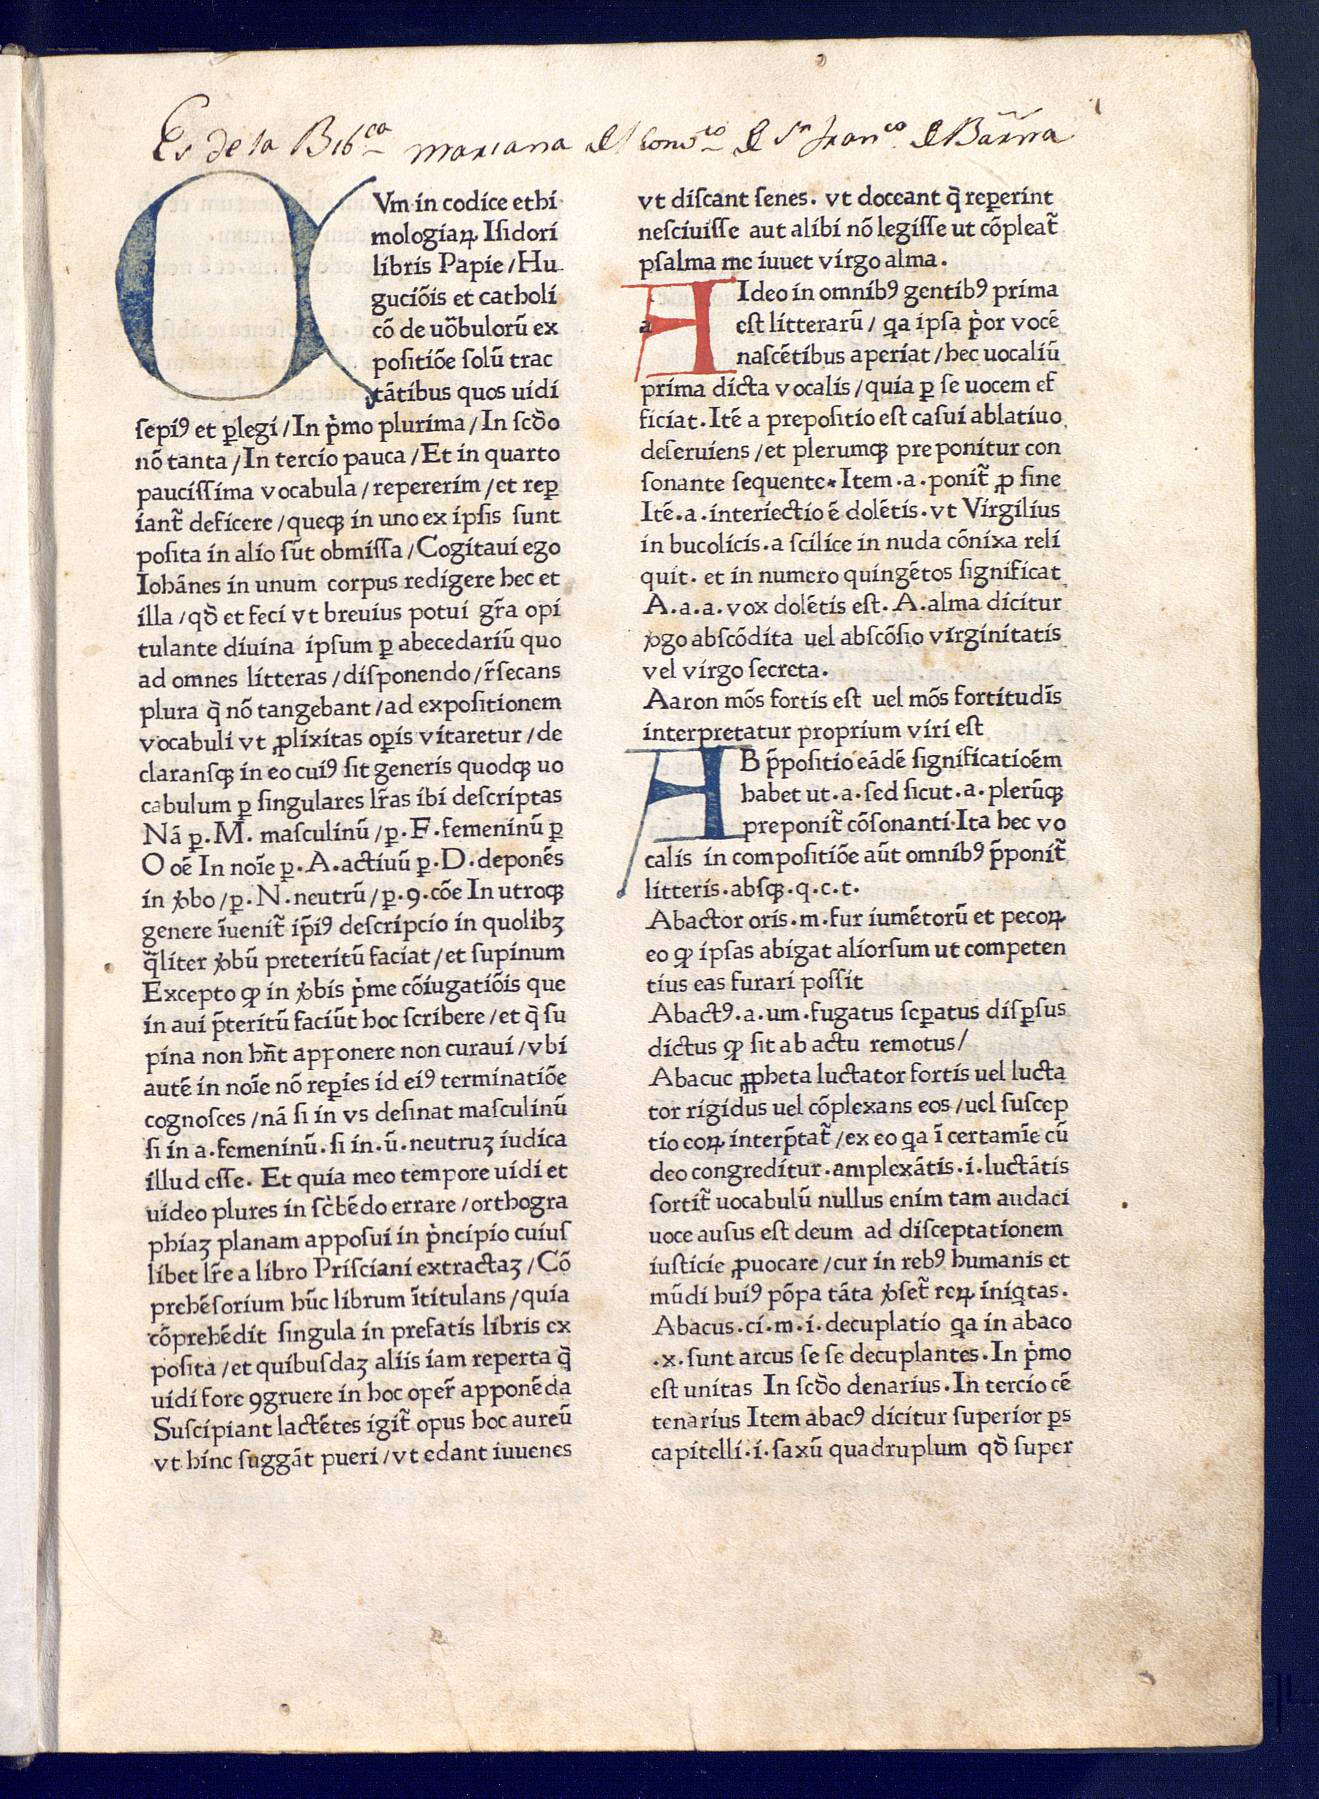 Es de la Bibca mariana del Convto de Sn Franco de Barna
CVm in codice ethi
mologiaꝝ Isidori
libris Papie/Hu
guciōis et catholi
cō de uōbuloꝛū ex
poſitiōe ſolū trac
tātibus quos uidi
ſepiꝰ et ꝑlegi/In pͥmo plurima/In ſcd̄o
nō tanta/In tercio pauca/Et in quarto
pauciſſima vocabula/repererim/et reꝑ
iant᷑ deficere/queqꝫ in uno ex ipſis ſunt
poſita in alio ſūt obmiſſa/Cogitaui ego
Iohānes in unum corpus redigere hec et
illa/qd̄ et feci vt breuius potui gr̄a opi
tulante diuina ipſum ꝑ abecedariū quo
ad omnes litteras/diſponendo/r̄ſecans
plura q̄ nō tangebant/ad expoſitionem
vocabuli vt ꝓlixitas oꝑis vitaretur/de
claranſqꝫ in eo cuiꝰ ſit generis quodqꝫ uo
cabulum ꝑ ſingulares lr̄as ibi deſcriptas
Nā ꝑ.M. maſculinū/ꝑ.F.femeninū ꝑ
O oē In noīe ꝑ.A.actiuū ꝑ.D.deponēs
in ꝟbo/ꝑ.N.neutrū/ꝑ.ꝯ.cōe In utroqꝫ
genere īuenit᷑ ip̄iꝰ deſcripcio in quolibꝫ
q̄liter ꝟbū preteritū faciat/et ſupinum
Excepto ꝙ in ꝟbis pͥme cōiugatiōis que
in aui p̄teritū faciūt hoc ſcribere/et q̄ ſu
pina non hn̄t apponere non curaui/vbi
autē in noīe nō reꝑies id eiꝰ terminatiōe
cognoſces/nā ſi in vs deſinat maſculinū
ſi in a.femeninū.ſi in.ū.neutruꝫ iudica
illud eſſe. Et quia meo tempore uidi et
uideo plures in ſcͥbēdo errare/orthogra
phiaꝫ planam appoſui in pͥncipio cuiuſ
libet lr̄e a libro Priſciani extractaꝫ/Cō
prehēſorium hūc librum ītitulans/quia
cōprehēdit ſingula in prefatis libris ex
poſita/et quibuſdaꝫ aliis iam reperta q̄
uidi fore ꝯgruere in hoc oper̄ apponēda
Suſcipiant lactētes igit᷑ opus hoc aureū
vt hinc ſuggāt pueri/vt edant iuuenes
vt diſcant ſenes. vt doceant q̄ reꝑerint
neſciuiſſe aut alibi nō legiſſe ut cōpleat᷑
pſalma me iuuet virgo alma.
a AIdeo in omnibꝰ gentibꝰ prima
eſt litterarū/ qa ipſa pͥor vocē
naſcētibus aperiat/hec uocaliū
prima dicta vocalis/quia ꝑ ſe uocem ef
ficiat.Itē a prepoſitio eſt caſui ablatiuo
deſeruiens/et plerumqꝫ preponitur con
ſonante ſequente.Item.a.ponit᷑ ꝓ ſine
Itē.a.interiectio ē dolētis.vt Virgilius
in bucolicis.a ſcilice in nuda cōnixa reli
quit. et in numero quingētos ſignificat
A.a.a.vox dolētis eſt.A.alma dicitur
ꝟgo abſcōdita uel abſcōſio virginitatis
vel virgo ſecreta.
Aaron mōs fortis eſt uel mōs fortitudīs
interpretatur proprium viri eſt
AB p̄poſitio eādē ſignificatioēm
habet ut.a.ſed ſicut.a.plerūqꝫ
preponit᷑ cōſonanti.Ita hec vo
calis in compoſitiōe aūt omnibꝰ p̄ponit᷑
litteris.abſqꝫ.q.c.t.
Abactor oris.m.fur iumētorū et pecoꝝ
eo ꝙ ipſas abigat aliorſum ut competen
tius eas furari poſſit
Abactꝰ.a.um.fugatus ſeꝑatus diſꝑſus
dictus ꝙ ſit ab actu remotus/
Abacuc ꝓpheta luctator fortis uel lucta
tor rigidus uel cōplexans eos/uel ſuſcep
tio eoꝝ interp̄tat᷑/ex eo qa ī certamīe cū
deo congreditur.amplexātis.i.luctātis
ſortit᷑ uocabulū nullus enim tam audaci
uoce auſus eſt deum ad diſceptationem
iuſticie ꝓuocare/cur in rebꝰ humanis et
mūdi huiꝰ pōpa tāta ꝟſet᷑ reꝝ iniqtas.
Abacus.ci.m.i.decuplatio qa in abaco
.x.ſunt arcus ſe ſe decuplantes.In pͥmo
eſt unitas In ſcd̄o denarius.In tercio cē
tenarius Item abacꝰ dicitur ſuperior ꝑs
capitelli.i.ſaxū quadruplum qd̄ ſuper